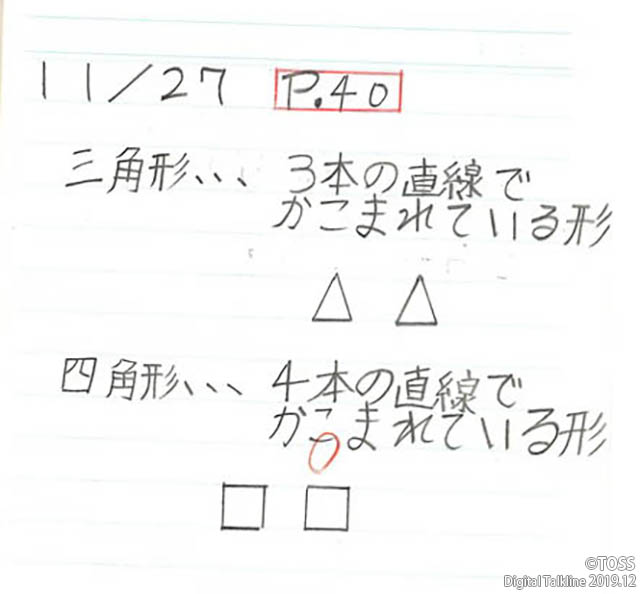 11/27 P.40
三角形、、、 3本の直線で
かこまれている形
四角形、、、 4本の直線で
かこまれている形
©TOSS
Digital Talkline 2019.12